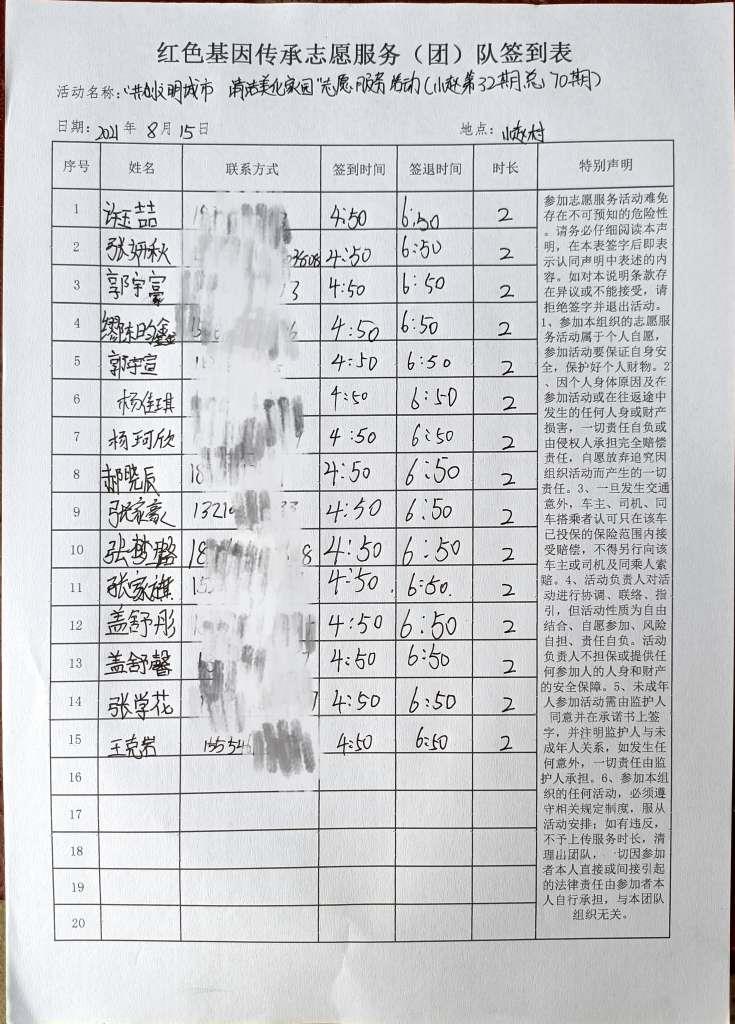 红色基因传承志愿服务（团）队签到表
活动名称："共创文明城市 清洁美化家园"志愿服务活动(小赵第32期总70期)
日期：2021年 8月 15日 地点：小赵村
序号 姓名 联系方式 签到时间 签退时间 时长 特别声明
1 许玉喆 4:50 6:50 2
2 张妍秋 4:50 6:50 2
3 郭宇豪 3 4:50 6:50 2
4 鑫 4:50 6:50 2
5 郭宇宣 4:50 6:50 2
6 杨佳琪 4:50 6:50 2
7 杨珂欣 4:50 6:50 2
8 郝晓辰 18 4:50 6:50 2
9 张家豪 4:50 6:50 2
10 张梦璐 18 8 4:50 6:50 2
11 张家旗 15 4:50 6:50 2
12 盖舒彤 4:50 6:50 2
13 盖舒馨 4:50 6:50 2
14 张学花 4:50 6:50 2
15 王克岩 4:50 6:50 2
16
17
18
19
20
参加志愿服务活动难免
存在不可预知的危险性
。请务必仔细阅读本声
明，在本表签字后即表
示认同声明中表述的内
容。如对本说明条款存
在异议或不能接受，请
拒绝签字并退出活动。
1、参加本组织的志愿服
务活动属于个人自愿，
参加活动要保证自身安
全，保护好个人财物。2
、因个人身体原因及在
参加活动或在往返途中
发生的任何人身或财产
损害，一切责任自负或
由侵权人承担完全赔偿
责任，自愿放弃追究因
组织活动而产生的一切
责任。3、一旦发生交通
意外，车主、司机、同
车搭乘者认可只在该车
已投保的保险范围内接
受赔偿，不得另行向该
车主或司机及同乘人索
赔。4、活动负责人对活
动进行协调、联络、指
引，但活动性质为自由
结合、自愿参加、风险
自担、责任自负。活动
负责人不担保或提供任
何参加人的人身和财产
的安全保障。5、未成年
人参加活动需由监护人
同意并在承诺书上签
字，并注明监护人与未
成年人关系，如发生任
何意外，一切责任由监
护人承担。6、参加本组
织的任何活动，必须遵
守相关规定制度，服从
活动安排；如有违反，
不予上传服务时长，清
理出团队，一切因参加
者本人直接或间接引起
的法律责任由参加者本
人自行承担，与本团队
组织无关。